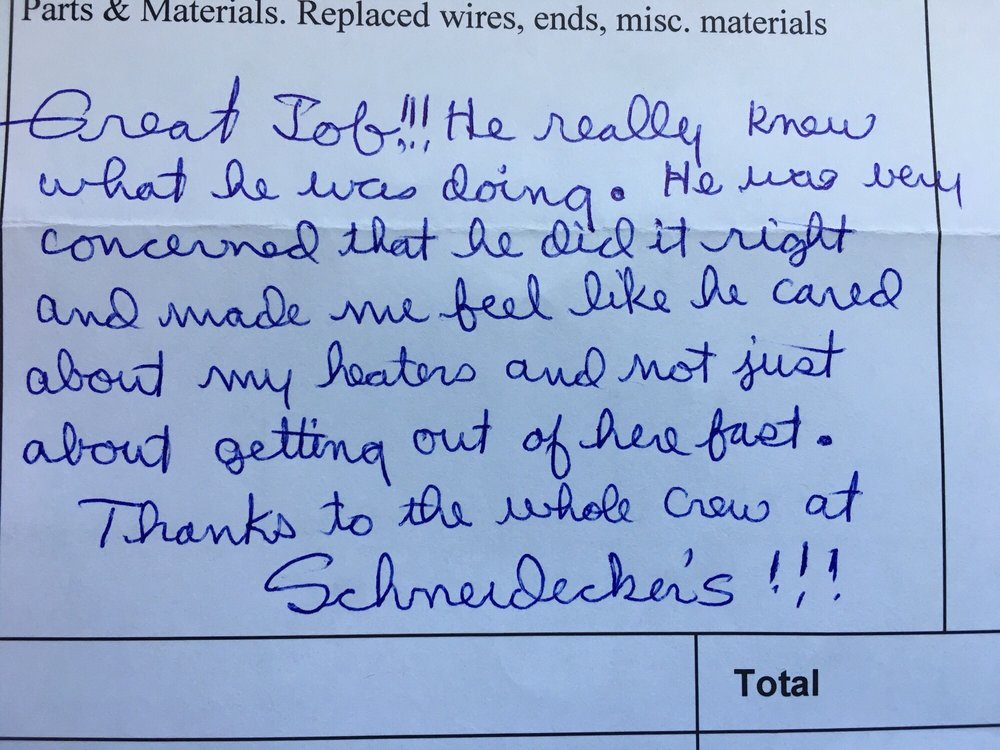 Parts & Materials. Replaced wires, ends, misc. materials
Great Job!!! He really knew
what he was doing. He was very
concerned that he did it right
and made me feel like he cared
about my heaters and not just
about getting out of here fast.
Thanks to the whole crew at
Schneidecker's !!!
Total